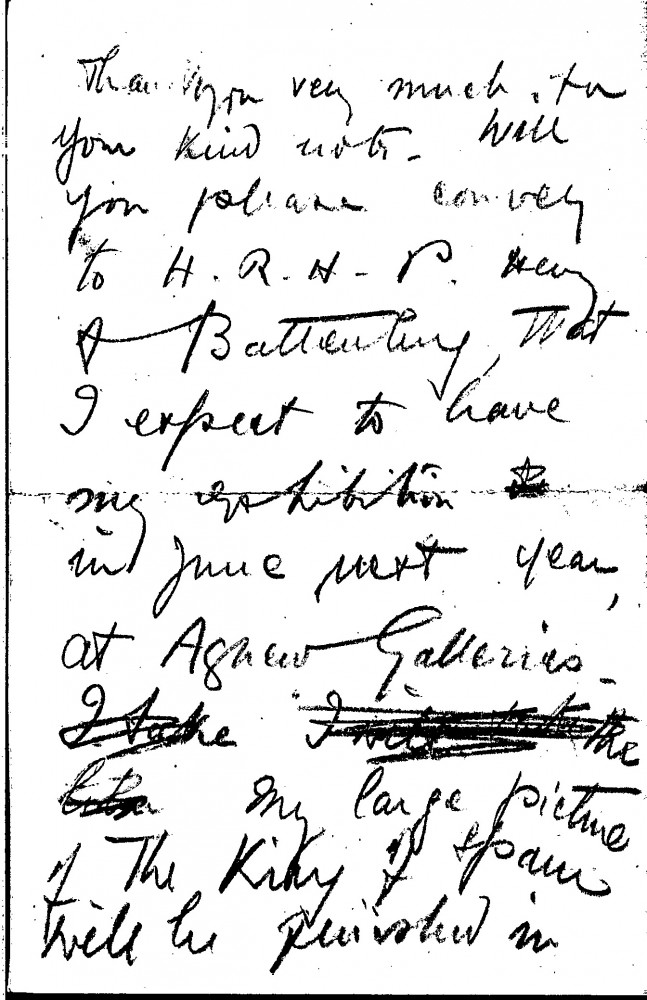 Thank you very much for
your kind note. Will
you please convey
to H.R.H. P. Henry
of Battenberg, that
I expect to have
my exhibition
in June next year,
at Agnew Galleries.
I take I will the
my large picture
of The King of Spain
will be finished in